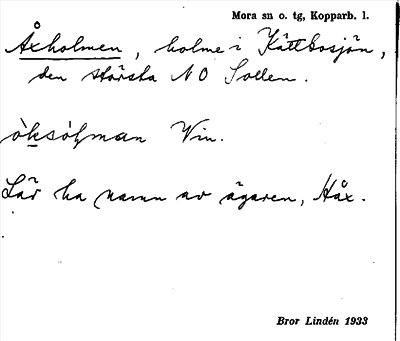 Mora sn o. tg, Kopparb. l.
Åxholmen, holme i Kättbosjön,
den största NO Sollen.
òksòłman Vin.
Lär ha namn av ägaren, Håx.
Bror Lindén 1933